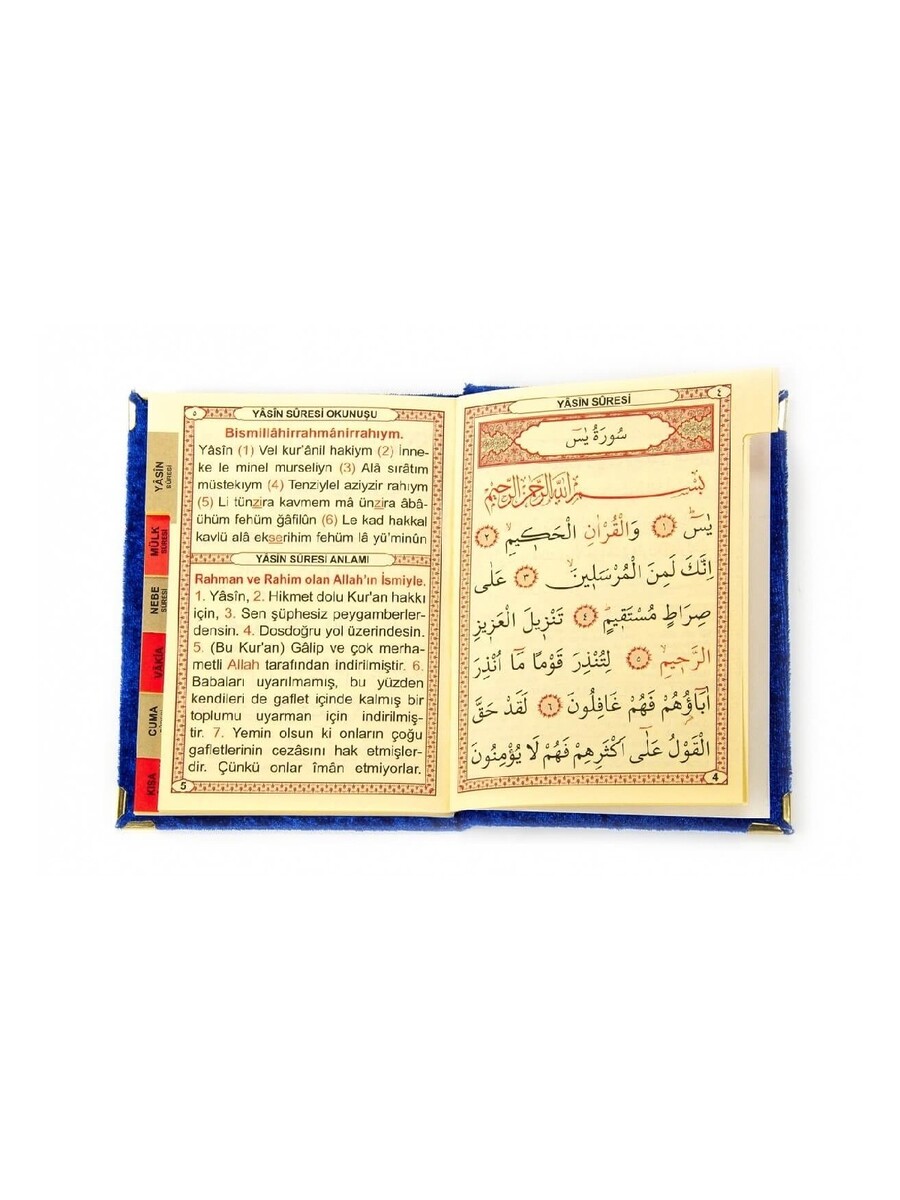 ٤
YÂSİN SÛRESİ
سُورَةُ يٰسٓ
بِسْمِ اللّٰهِ الرَّحْمٰنِ الرَّحِيمِ
يٰسٓۜ ١ وَالْقُرْاٰنِ الْحَكٖيمِۙ ٢
اِنَّكَ لَمِنَ الْمُرْسَلٖينَۙ ٣ عَلٰى
صِرَاطٍ مُسْتَقٖيمٍۜ ٤ تَنْزٖيلَ الْعَزٖيزِ
الرَّحٖيمِۙ ٥ لِتُنْذِرَ قَوْمًا مَٓا اُنْذِرَ
اٰبَٓاؤُ۬هُمْ فَهُمْ غَافِلُونَ ٦ لَقَدْ حَقَّ
الْقَوْلُ عَلٰٓى اَكْثَرِهِمْ فَهُمْ لَا يُؤْمِنُونَ
4
٥
YÂSİN SÛRESİ OKUNUŞU
Bismillâhirrahmânirrahıym.
Yâsîn (1) Vel kur'ânil hakiym (2) İnne-
ke le minel murseliyn (3) Alâ sırâtım
müstekıym (4) Tenziylel aziyzir rahıym
(5) Li tünzira kavmem mâ ünzira âbâ-
ühüm fehüm ğâfilûn (6) Le kad hakkal
kavlü alâ ekserihim fehüm lâ yü'minûn
YÂSİN SÛRESİ ANLAMI
Rahman ve Rahim olan Allah'ın İsmiyle.
1. Yâsîn, 2. Hikmet dolu Kur'an hakkı
için, 3. Sen şüphesiz peygamberler-
densin. 4. Dosdoğru yol üzerindesin.
5. (Bu Kur'an) Gâlip ve çok merha-
metli Allah tarafından indirilmiştir. 6.
Babaları uyarılmamış, bu yüzden
kendileri de gaflet içinde kalmış bir
toplumu uyarman için indirilmiş-
tir. 7. Yemin olsun ki onların çoğu
gafletlerinin cezâsını hak etmişler-
dir. Çünkü onlar îmân etmiyorlar.
5
YÂSİN
SÛRESİ
MÜLK
SÛRESİ
NEBE
SÛRESİ
VÂKIA
CUMA
KISA